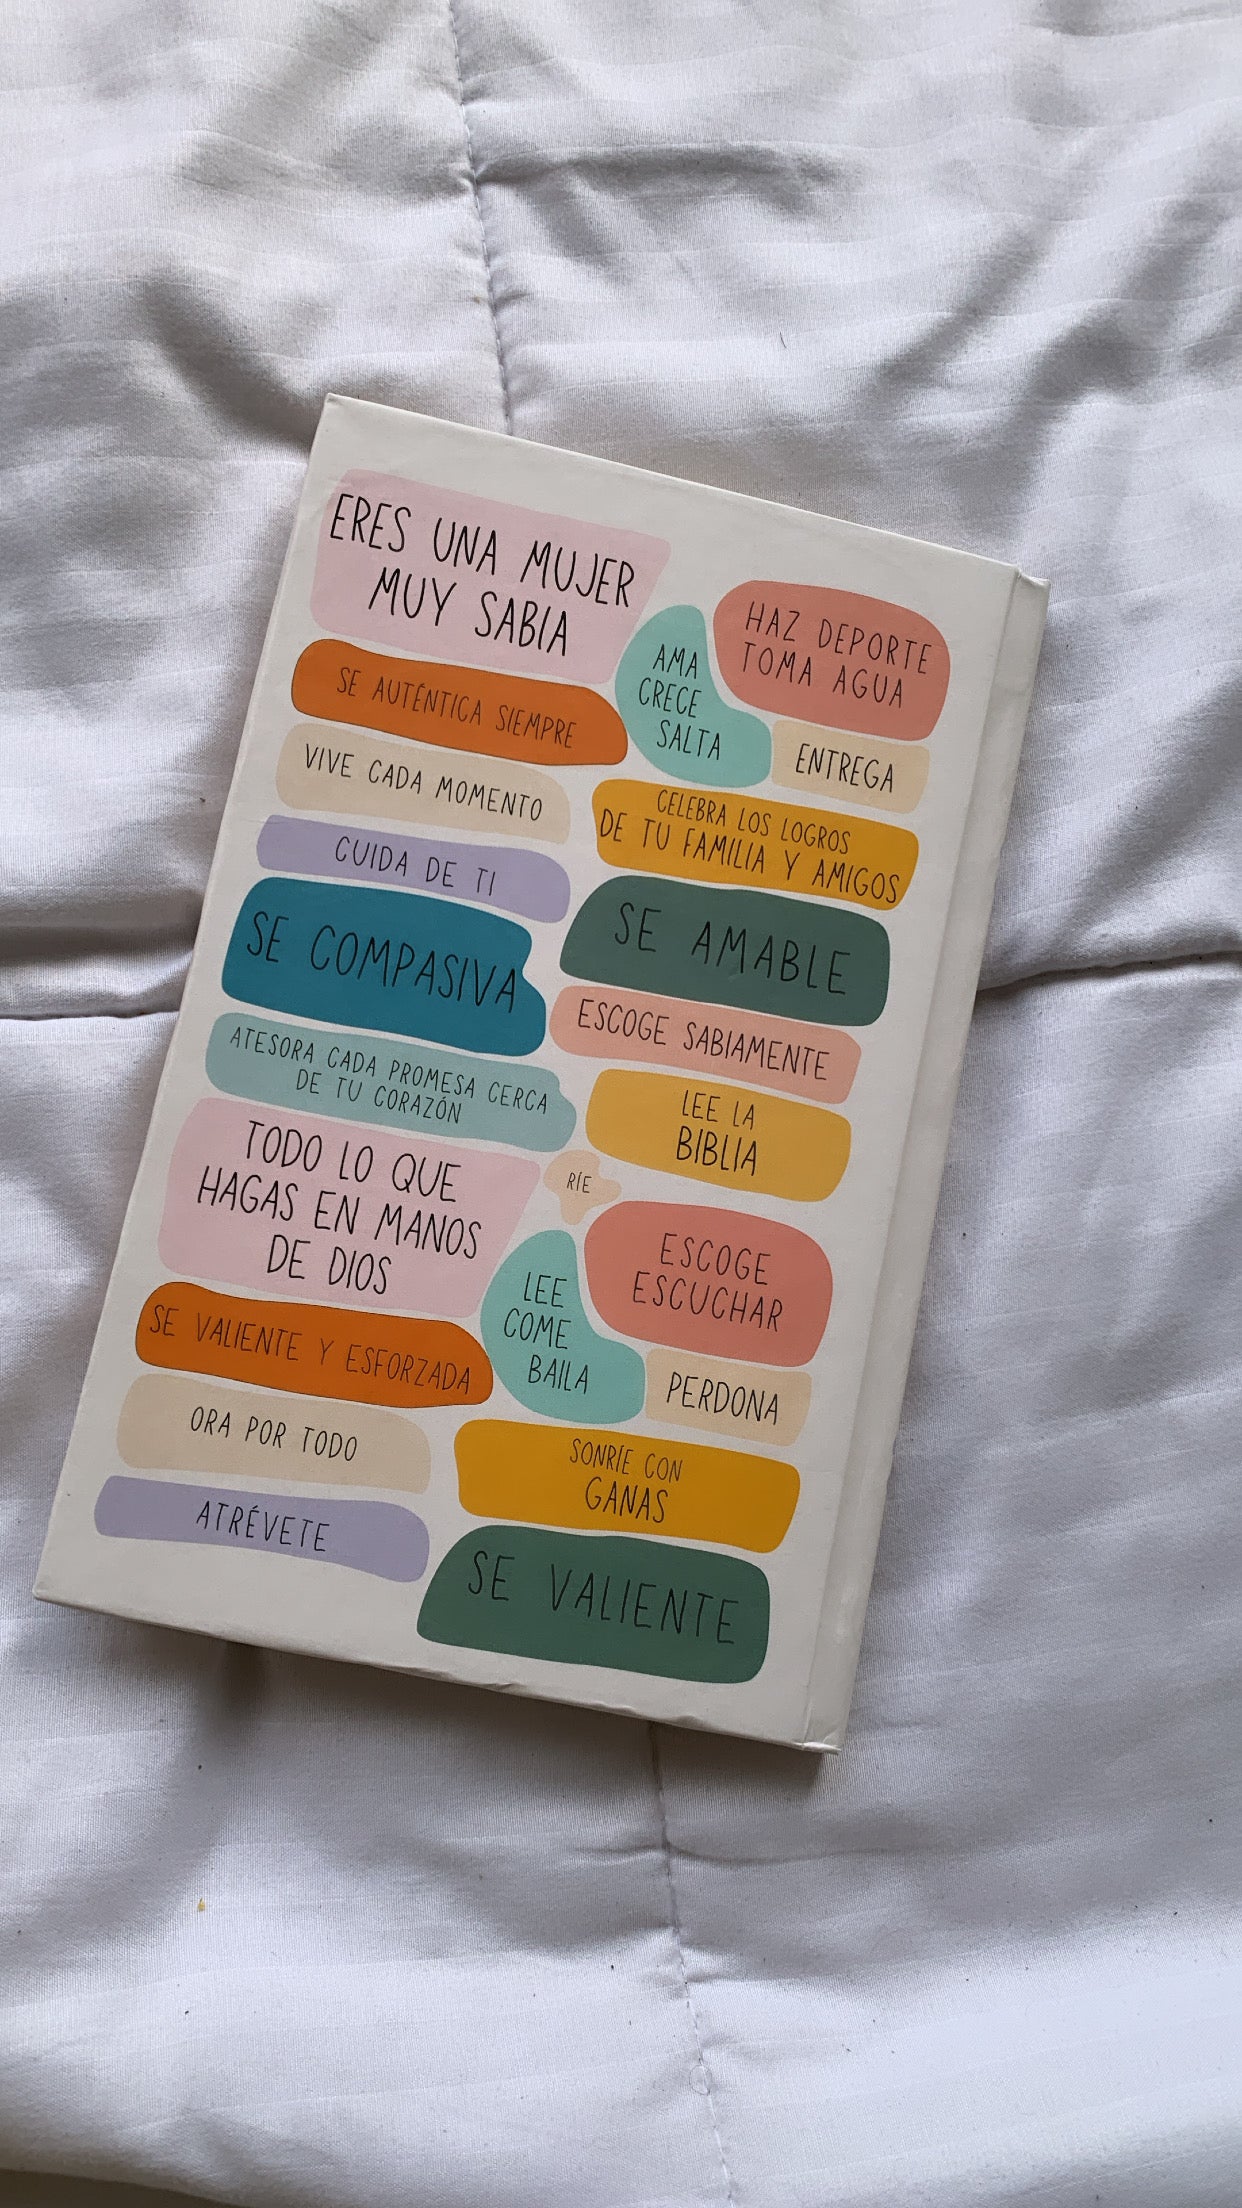 ERES UNA MUJER
MUY SABIA
SE AUTÉNTICA SIEMPRE
VIVE CADA MOMENTO
CUIDA DE TI
SE COMPASIVA
ATESORA CADA PROMESA CERCA
DE TU CORAZÓN
TODO LO QUE
HAGAS EN MANOS
DE DIOS
SE VALIENTE Y ESFORZADA
ORA POR TODO
ATRÉVETE
AMA
CRECE
SALTA
HAZ DEPORTE
TOMA AGUA
ENTREGA
CELEBRA LOS LOGROS
DE TU FAMILIA Y AMIGOS
SE AMABLE
ESCOGE SABIAMENTE
LEE LA
BIBLIA
RÍE
ESCOGE
ESCUCHAR
LEE
COME
BAILA
PERDONA
SONRÍE CON
GANAS
SE VALIENTE